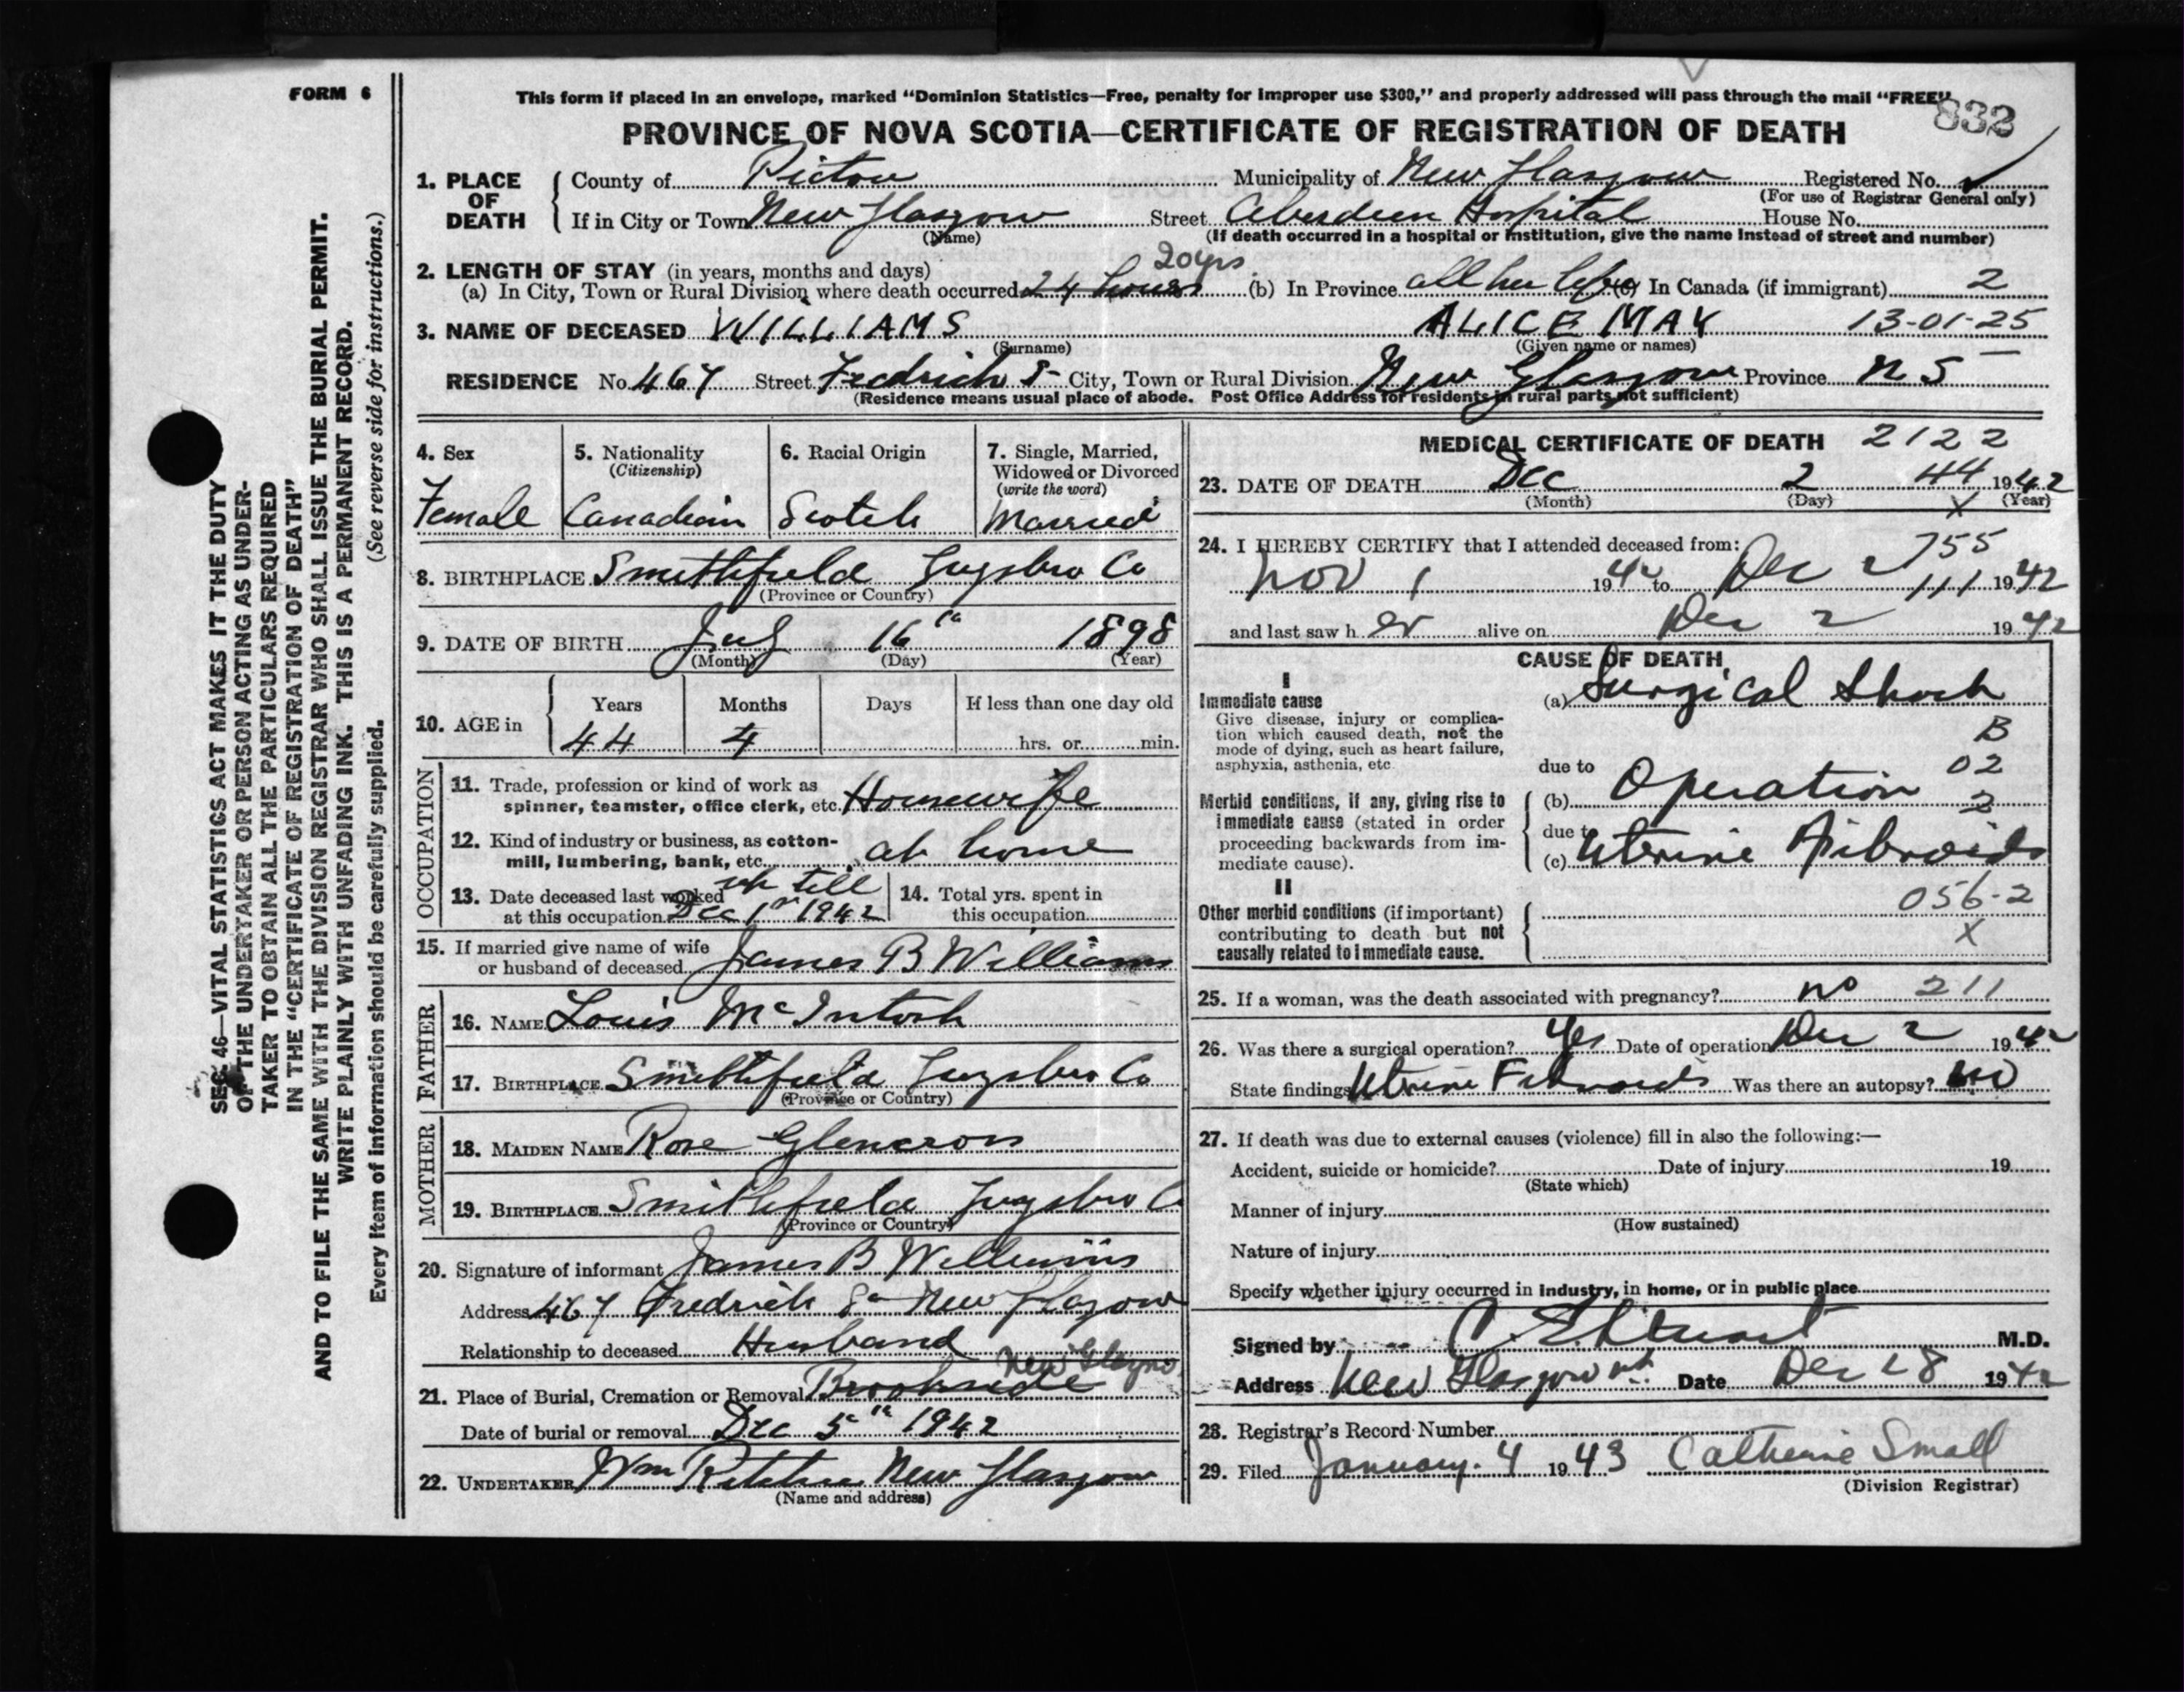 FORM 6
This form if placed in an envelope, marked "Dominion Statistics—Free, penalty for improper use $300," and properly addressed will pass through the mail "FREE"
832
PROVINCE OF NOVA SCOTIA—CERTIFICATE OF REGISTRATION OF DEATH
1. PLACE OF DEATH County of Pictou Municipality of New Glasgow Registered No.
(For use of Registrar General only)
If in City or Town New Glasgow Street Aberdeen Hospital House No.
(Name) (If death occurred in a hospital or institution, give the name instead of street and number)
2. LENGTH OF STAY (in years, months and days) 20 yrs.
(a) In City, Town or Rural Division where death occurred 24 hours (b) In Province all her life (c) In Canada (if immigrant) 2
3. NAME OF DECEASED WILLIAMS ALICE MAY 13-01-25
(Surname) (Given name or names)
RESIDENCE No. 467 Street Fredrich St City, Town or Rural Division New Glasgow Province N S
(Residence means usual place of abode. Post Office Address for residents in rural parts not sufficient)
4. Sex Female
5. Nationality (Citizenship) Canadian
6. Racial Origin Scotch
7. Single, Married, Widowed or Divorced (write the word) Married
8. BIRTHPLACE Smithfield Guysboro Co
(Province or Country)
9. DATE OF BIRTH 16th 1898
(Month) (Day) (Year)
10. AGE in Years 44 Months 4 Days If less than one day old hrs. or min.
OCCUPATION
11. Trade, profession or kind of work as spinner, teamster, office clerk, etc. Housewife
12. Kind of industry or business, as cotton-mill, lumbering, bank, etc. at home
13. Date deceased last worked at this occupation up till Dec 1st 1942
14. Total yrs. spent in this occupation
15. If married give name of wife or husband of deceased James B Williams
FATHER
16. NAME Louis McIntosh
17. BIRTHPLACE Smithfield Guysboro Co
(Province or Country)
MOTHER
18. MAIDEN NAME Rose Glencross
19. BIRTHPLACE Smithfield Guysboro Co
(Province or Country)
20. Signature of informant James B Williams
Address 467 Fredrich St New Glasgow
Relationship to deceased Husband
21. Place of Burial, Cremation or Removal Brookside New Glasgow
Date of burial or removal Dec 5th 1942
22. UNDERTAKER Wm Ritchie New Glasgow
(Name and address)
MEDICAL CERTIFICATE OF DEATH 2122
23. DATE OF DEATH Dec 2 44 1942
(Month) (Day) X (Year)
24. I HEREBY CERTIFY that I attended deceased from: 755
Nov 1 1942 to Dec 2 111 1942
and last saw h er alive on Dec 2 1942
CAUSE OF DEATH
I
Immediate cause
Give disease, injury or complication which caused death, not the mode of dying, such as heart failure, asphyxia, asthenia, etc.
(a) Surgical Shock
B
due to 02
Morbid conditions, if any, giving rise to immediate cause (stated in order proceeding backwards from immediate cause).
(b) Operation 2
due to
(c) Uterine Fibroids
II
Other morbid conditions (if important) contributing to death but not causally related to immediate cause.
056-2
X
25. If a woman, was the death associated with pregnancy? no 211
26. Was there a surgical operation? Yes Date of operation Dec 2 1942
State findings Uterine Fibroids Was there an autopsy? no
27. If death was due to external causes (violence) fill in also the following:—
Accident, suicide or homicide? Date of injury 19
(State which)
Manner of injury
(How sustained)
Nature of injury
Specify whether injury occurred in industry, in home, or in public place
Signed by M.D.
Address New Glasgow Date Dec 28 1942
28. Registrar's Record Number
29. Filed January 4 1943 Catherine Small
(Division Registrar)
SEC. 46—VITAL STATISTICS ACT MAKES IT THE DUTY
OF THE UNDERTAKER OR PERSON ACTING AS UNDER-
TAKER TO OBTAIN ALL THE PARTICULARS REQUIRED
IN THE "CERTIFICATE OF REGISTRATION OF DEATH"
AND TO FILE THE SAME WITH THE DIVISION REGISTRAR WHO SHALL ISSUE THE BURIAL PERMIT.
WRITE PLAINLY WITH UNFADING INK. THIS IS A PERMANENT RECORD.
Every item of information should be carefully supplied. (See reverse side for instructions.)